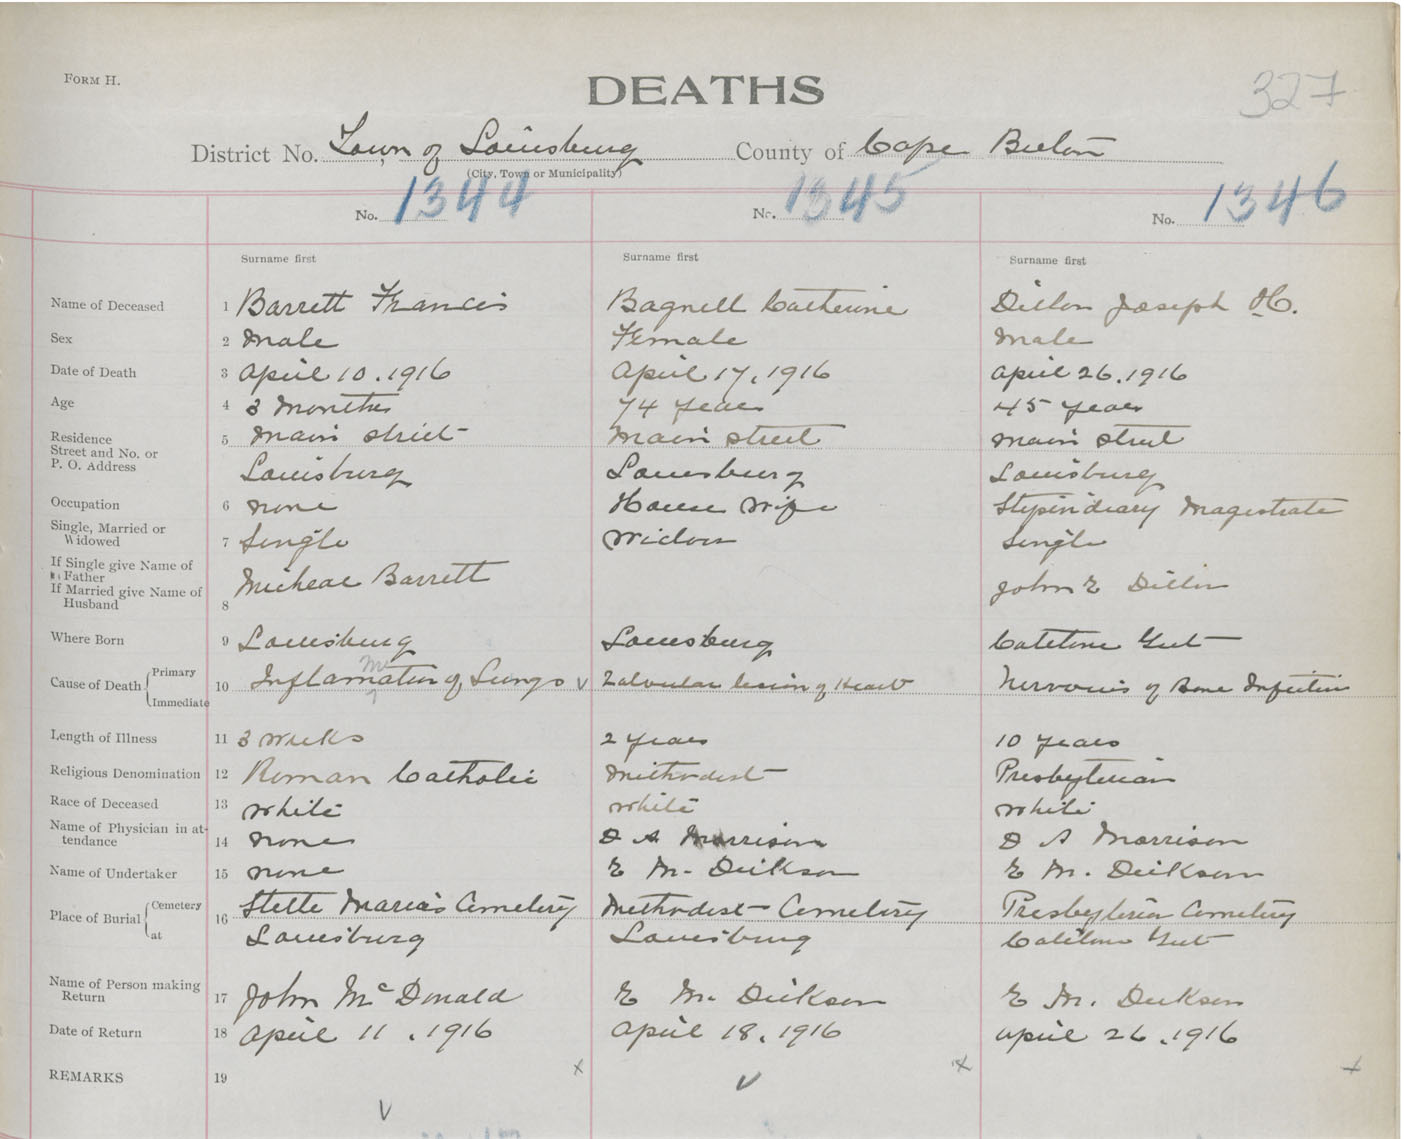 FORM H.
DEATHS
327
District No. Town of Louisburg County of Cape Breton
(City, Town or Municipality)
No. 1344 No. 1345 No. 1346
Surname first Surname first Surname first
Name of Deceased 1 Barrett Francis Bagnell Catherine Dillon Joseph H.
Sex 2 Male Female Male
Date of Death 3 April 10. 1916 April 17, 1916 April 26. 1916
Age 4 3 Months 74 years 45 years
Residence
Street and No. or 5 Main Street Main Street Main Street
P. O. Address Louisburg Louisburg Louisburg
Occupation 6 none House wife Stipindiary Magistrate
Single, Married or
Widowed 7 Single Widow Single
If Single give Name of
Father Micheal Barrett John E Dillon
If Married give Name of
Husband 8
Where Born 9 Louisburg Louisburg Catalone Gut
Cause of Death Primary 10 Inflamation of Lungs Valvular lesion of Heart of Bone Infection
Immediate
Length of Illness 11 3 weeks 2 years 10 years
Religious Denomination 12 Roman Catholic Methodist Presbyterian
Race of Deceased 13 White White White
Name of Physician in at-
tendance 14 none D A Morrison D A Morrison
Name of Undertaker 15 none E M. Dickson E M. Dickson
Place of Burial Cemetery 16 Stelle Maries Cemetery Methodist Cemetery Presbyterian Cemetery
at Louisburg Louisburg Catalone Gut
Name of Person making
Return 17 John McDonald E M. Dickson E M. Dickson
Date of Return 18 April 11 . 1916 April 18. 1916 April 26 . 1916
REMARKS 19